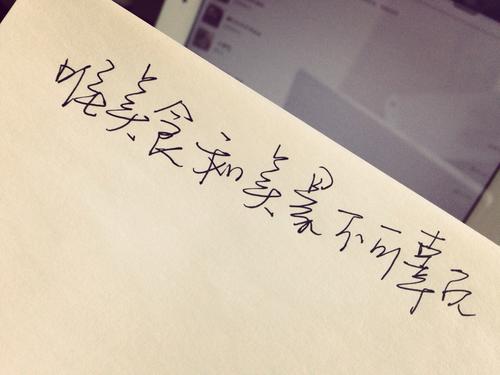 唯美食和美景不可辜负